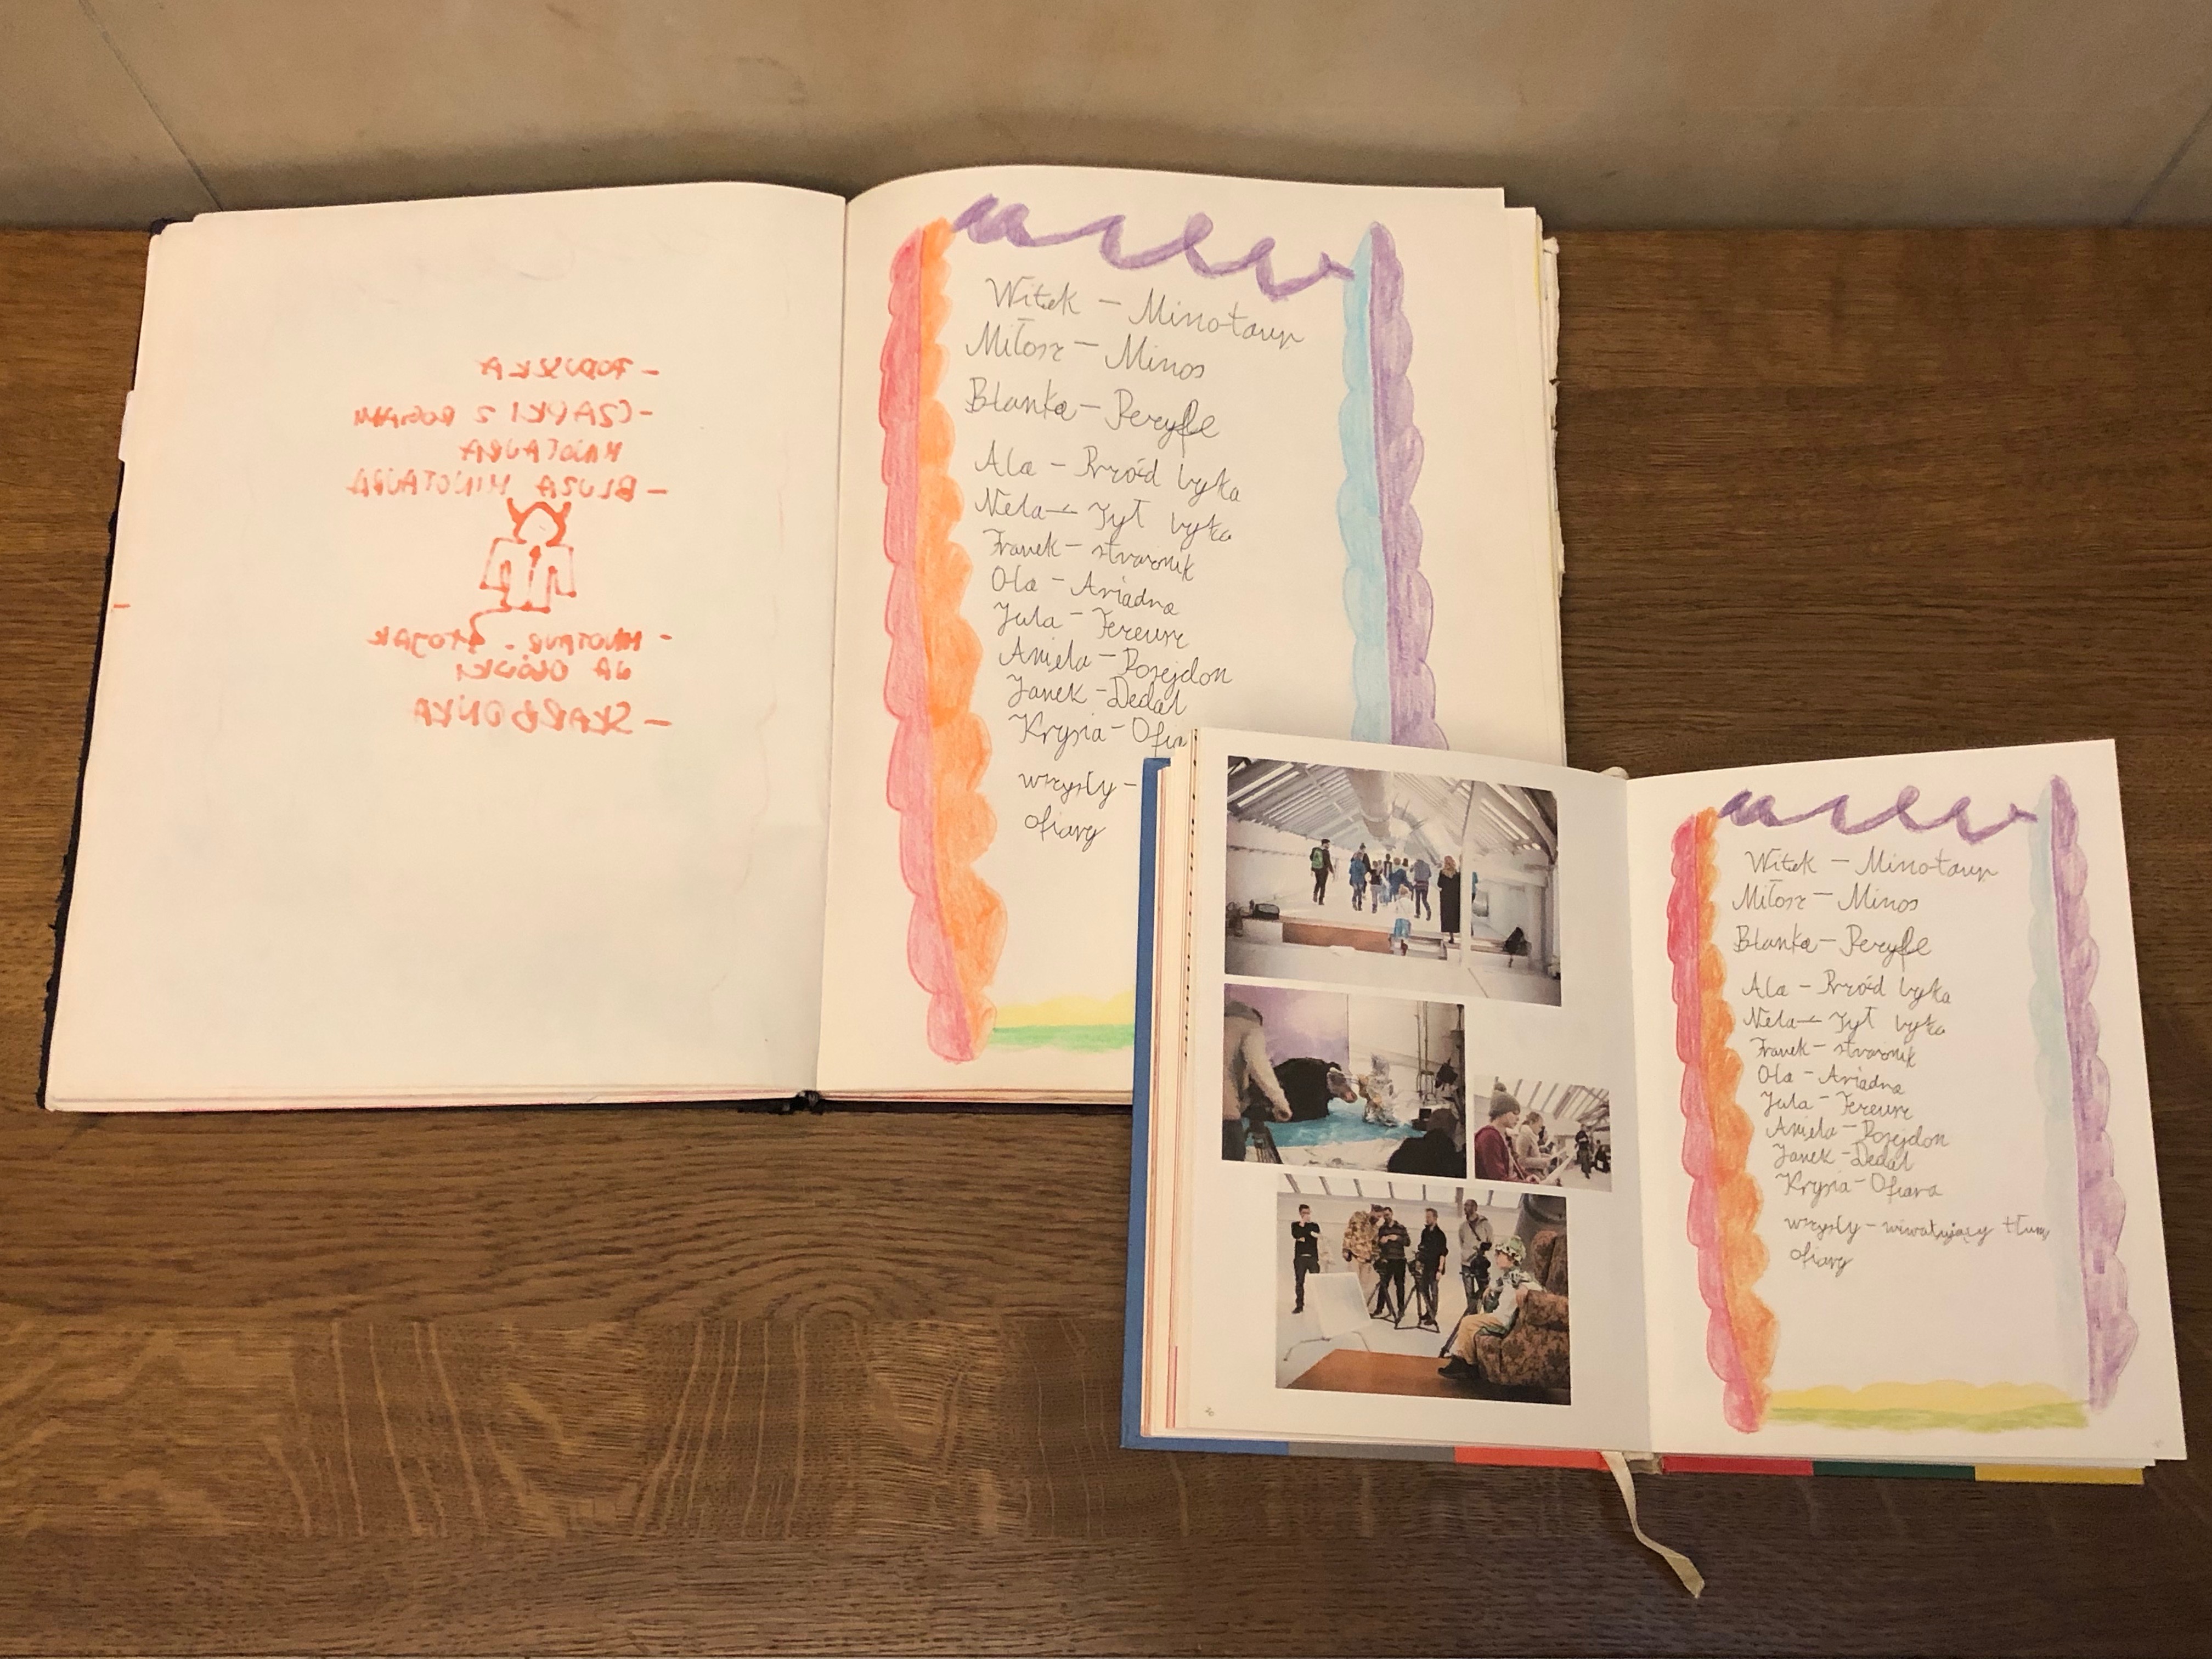 - PODUSZKA
- CZAPKI Z ROGAMI
MINOTAURA
- BLUZA MINOTAURA
- MINOTAUR - STOJAK
NA OŁÓWKI
- SKARBONKA
Witek - Minotaur
Miłosz - Minos
Blanka - Peryfe
Ala - Przód byka
Nela - Tył byka
Franek - strażnik
Ola - Ariadna
Jula - Tezeusz
Aniela - Posejdon
Janek - Dedal
Krysia - Ofia
wszyscy -
ofiary
Witek - Minotaur
Miłosz - Minos
Blanka - Peryfe
Ala - Przód byka
Nela - Tył byka
Franek - strażnik
Ola - Ariadna
Jula - Tezeusz
Aniela - Posejdon
Janek - Dedal
Krysia - Ofiara
wszyscy - wiwatujący tłum
ofiary